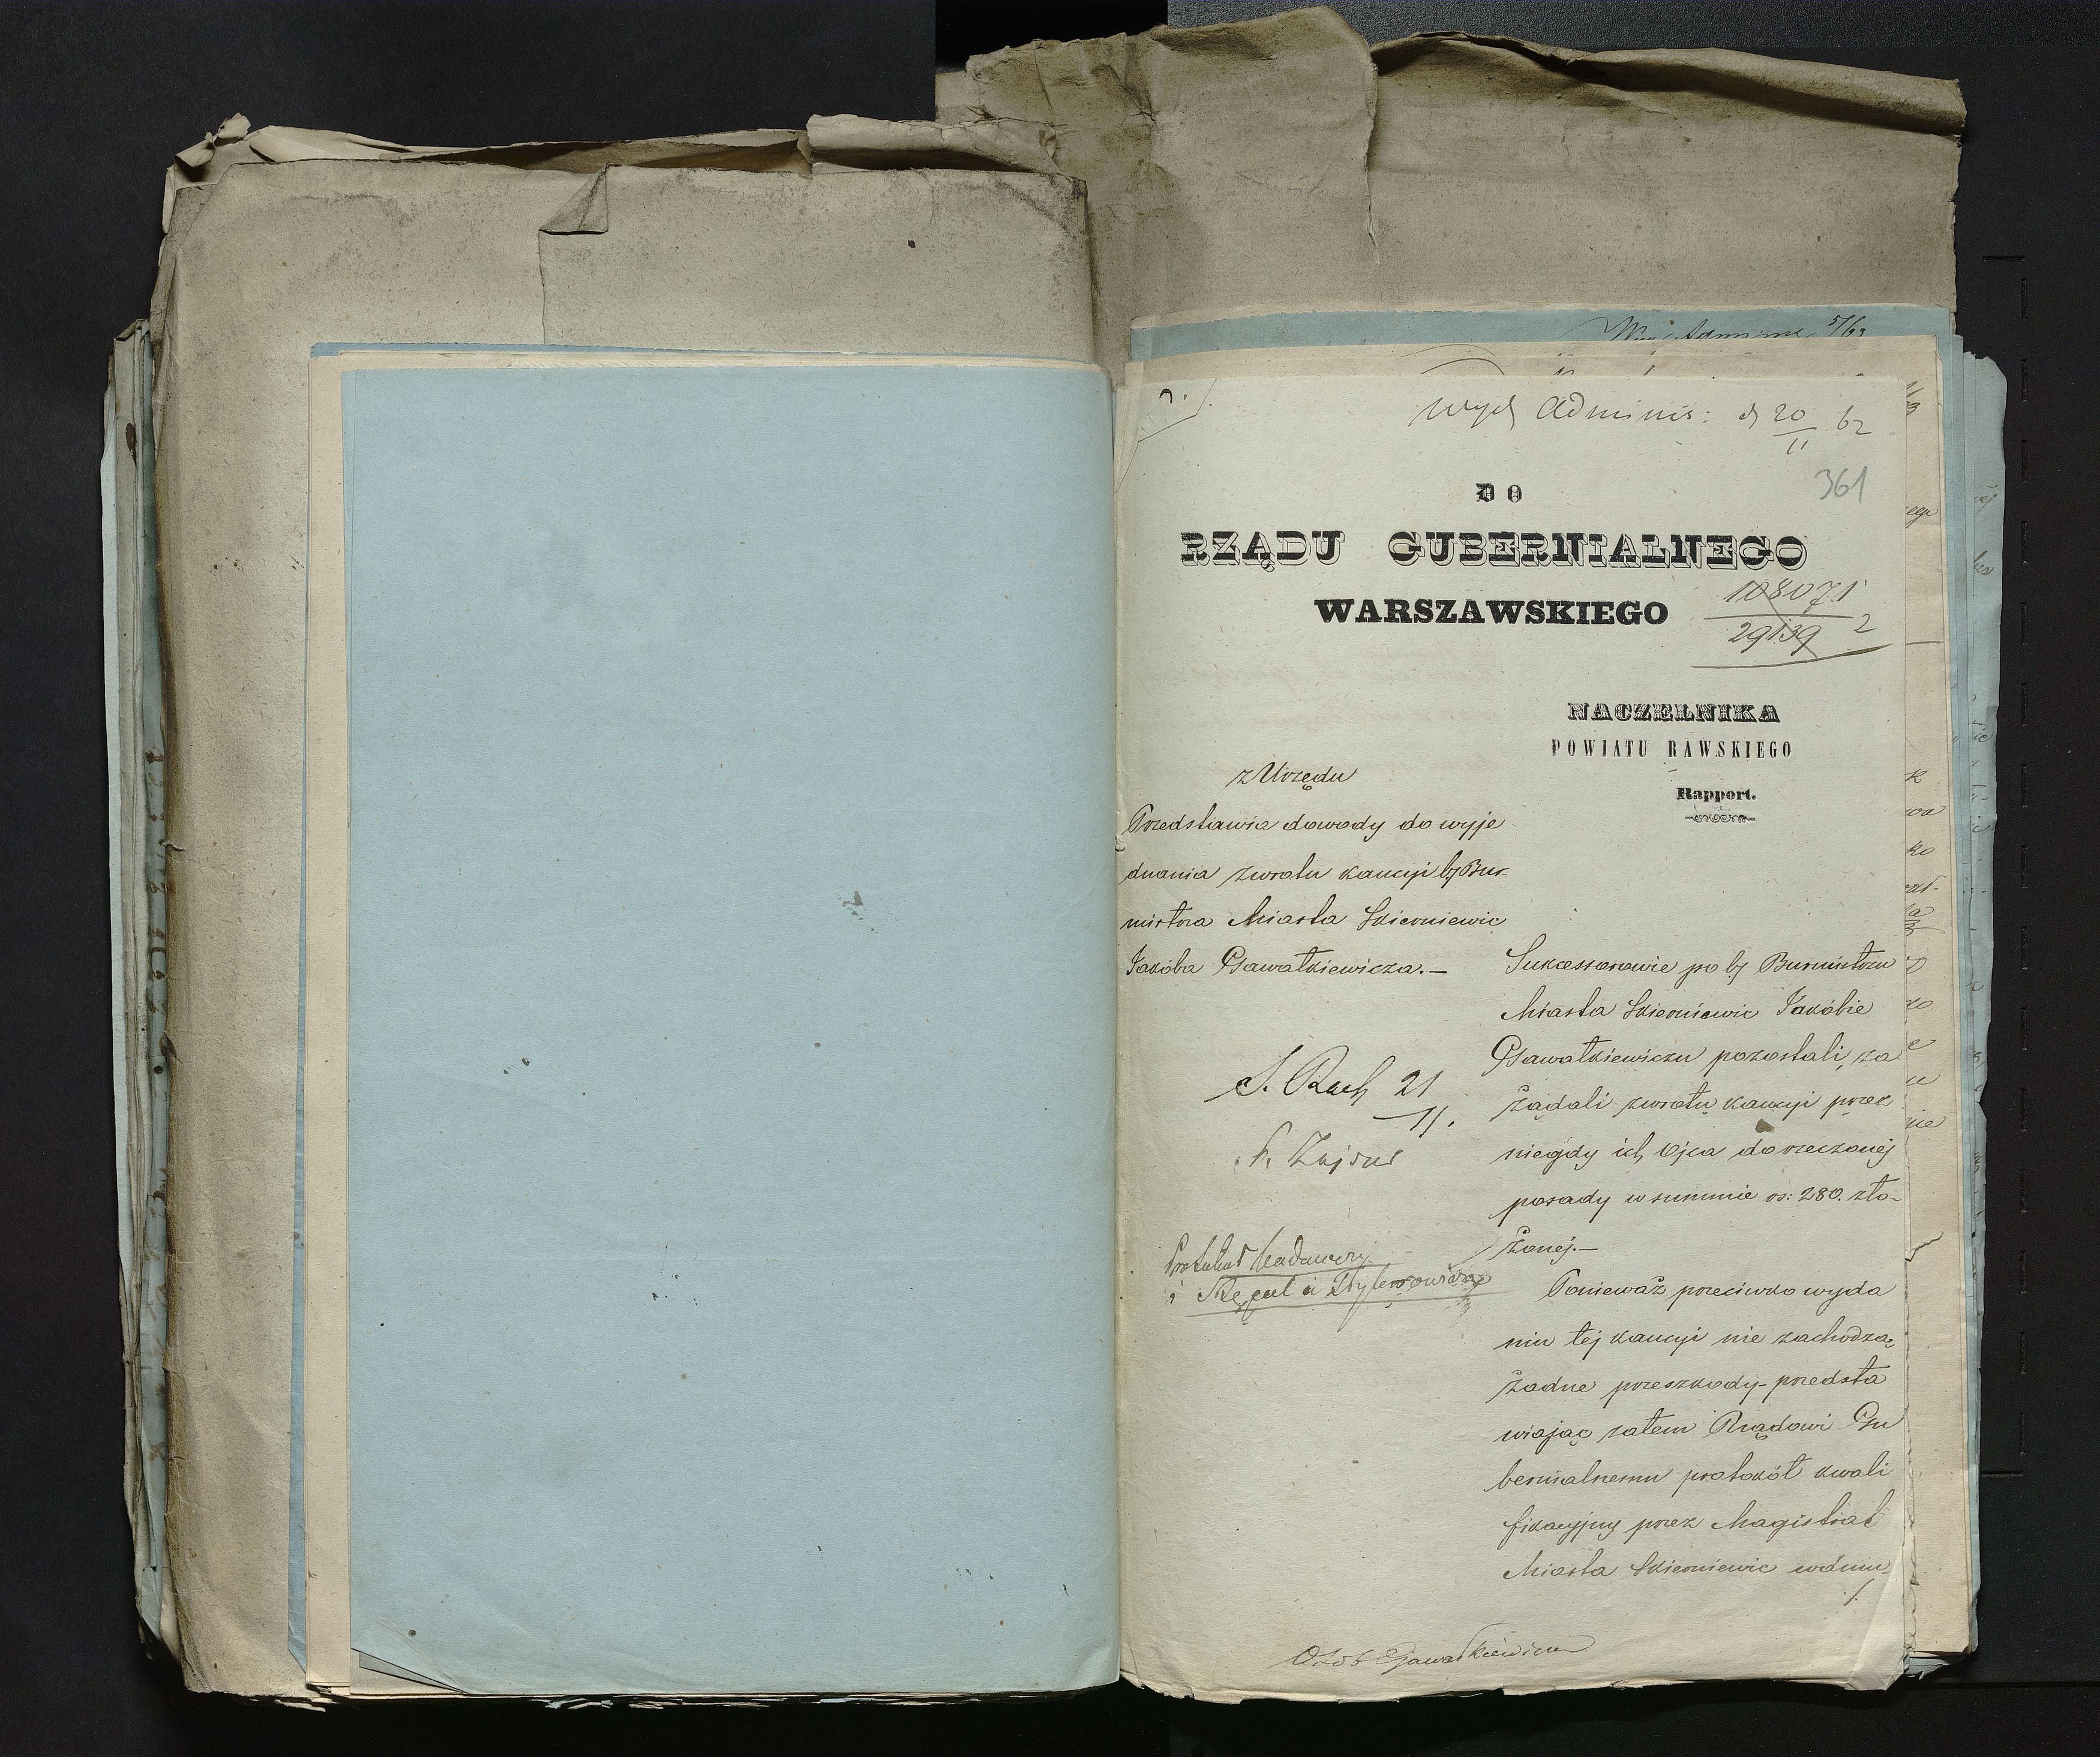 Wyd Adminis: d 20/11 62
361
DO
RZĄDU GUBERNIALNEGO
WARSZAWSKIEGO
108071
29139 2
NACZELNIKA
POWIATU RAWSKIEGO
Rapport.
z Urzędu
Przedstawia dowody do wyje
dnania zwrotu kaucyi bj Bur-
mistrza Miasta Skierniewic
Jakóba Gawałkiewicza.—
S. Rach 21
11.
Protokuł
i
Sukcessorowie po bj Burmistrzu
Miasta Skierniewic Jakóbie
Gawałkiewiczu pozostali, za
żądali zwrotu kaucyi przez
niegdy ich Ojca do rzeczonej
posady w summie rs: 280. zło-
żonej.—
Ponieważ przeciwko wyda
niu tej kaucyi nie zachodzą
żadne przeszkody- przedsta
wiając zatem Rządowi Gu
bernialnemu protokół kwali
fikacyjny przez Magistrat
Miasta Skierniewic wdniu
./.
Osob Gawałkiewicza